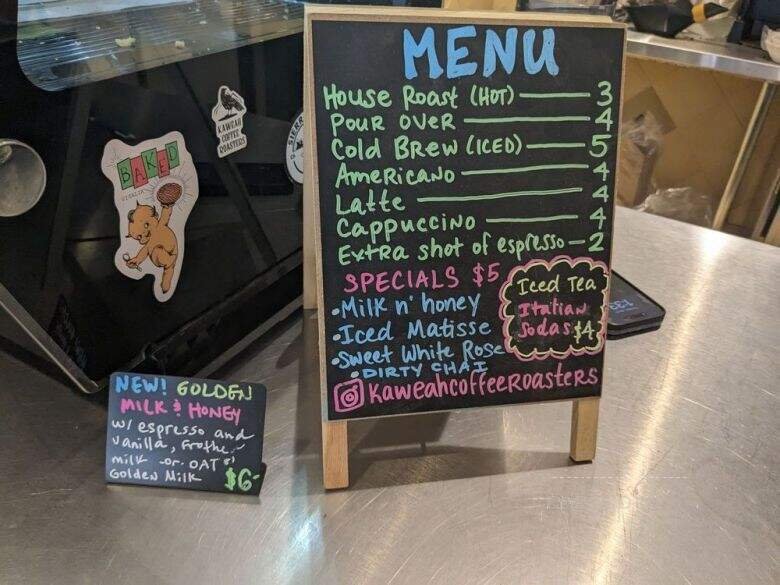 MENU
House Roast (HOT) — 3
Pour Over — 4
Cold Brew (ICED) — 5
Americano — 4
Latte — 4
Cappuccino — 4
Extra shot of espresso — 2
SPECIALS $5
• Milk n' honey
• Iced Matisse
• Sweet White Rose
• DIRTY CHAI
Iced Tea
Italian
Sodas $4
kaweahcoffeeroasters
NEW! GOLDEN
MILK & HONEY
w/ espresso and
vanilla, frothe
milk -or- OAT
Golden Milk $6-
BAKED
KAWEAH
COFFEE
ROASTERS
SIERR